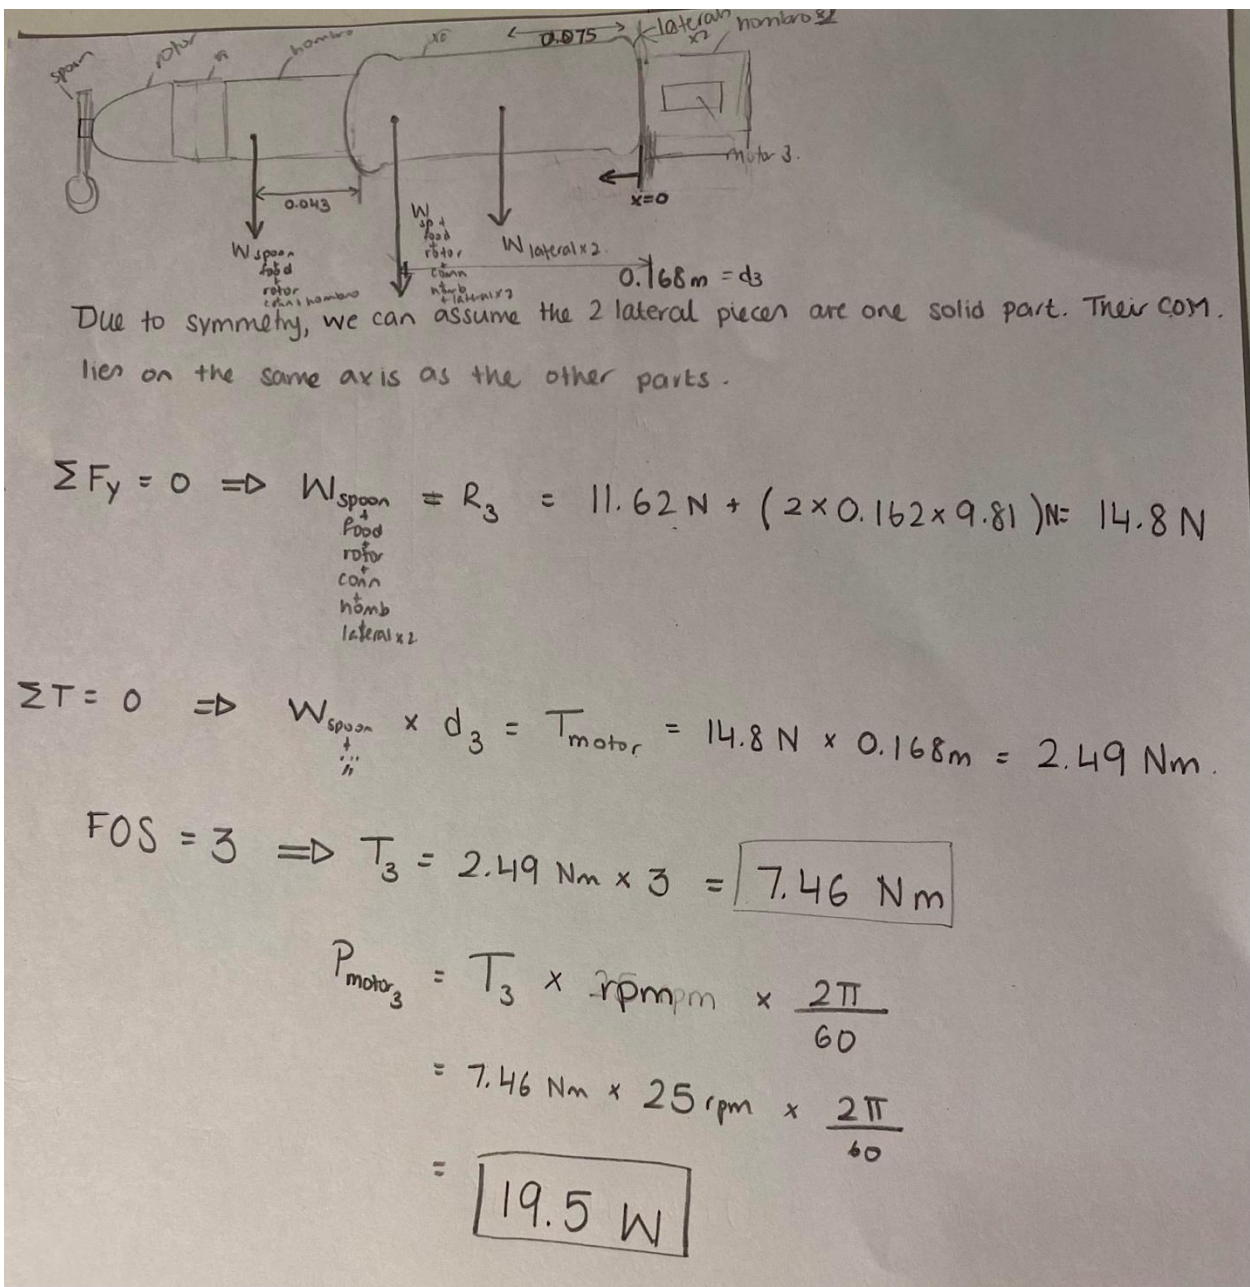 lateral x2
hombro x2
0.075
spoon
rotor
hombro
motor 3.
x=0
0.043
W spoon + food + rotor
hombro
W sp + food + rotor + conn + homb + lateral x2
W lateral x 2.
0.168m = d3
Due to symmetry, we can assume the 2 lateral pieces are one solid part. Their COM.
lies on the same axis as the other parts.
ΣFy = 0 => W spoon + food + rotor + conn + homb + lateral x2 = R3 = 11.62 N + (2×0.162×9.81)N= 14.8 N
ΣT= 0 => W spoon + ... " × d3 = Tmotor = 14.8 N × 0.168m = 2.49 Nm.
FOS = 3 => T3 = 2.49 Nm × 3 = 7.46 Nm
Pmotor3 = T3 × rpm × 2π/60
= 7.46 Nm × 25 rpm × 2π/60
= 19.5 W